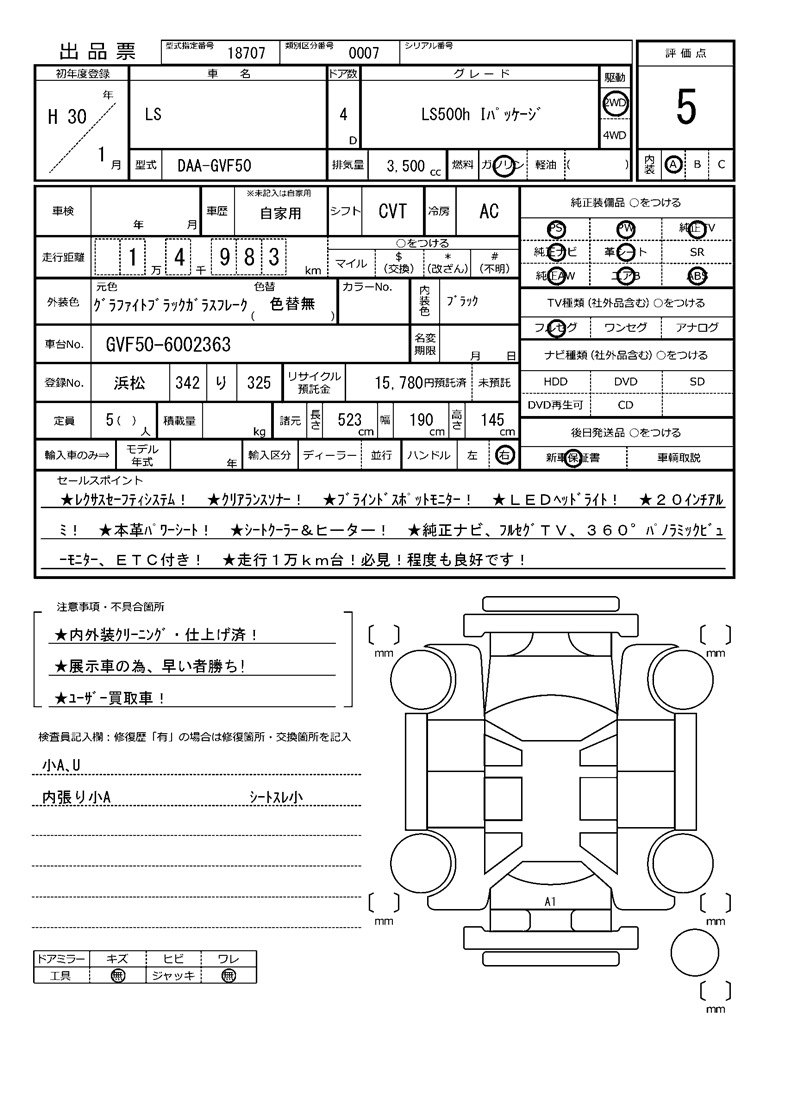 出品票 型式指定番号 18707 類別区分番号 0007 シリアル番号
評価点
初年度登録 車名 ドア数 グレード 駆動
H 30 年 LS 4 D LS500h Iパッケージ 2WD 5
1 月 4WD
型式 DAA-GVF50 排気量 3,500 cc 燃料 ガソリン 軽油 ( ) 内装 A B C
車検 年 月 車歴 ※未記入は自家用 自家用 シフト CVT 冷房 AC
純正装備品 ○をつける
PS PW 純正TV
純正ナビ 革シート SR
純正AW エアB ABS
走行距離 1 万 4 千 9 8 3 km ○をつける
マイル $(交換) *(改ざん) #(不明)
外装色 元色 グラファイトブラックガラスフレーク 色替 ( 色替無 ) カラーNo. 内装色 ブラック
TV種類(社外品含む)○をつける
フルセグ ワンセグ アナログ
車台No. GVF50-6002363 名変期限 月 日
ナビ種類(社外品含む)○をつける
HDD DVD SD
DVD再生可 CD
登録No. 浜松 342 り 325 リサイクル預託金 15,780円預託済 未預託
定員 5( ) 人 積載量 kg 諸元 長さ 523 cm 幅 190 cm 高さ 145 cm
後日発送品 ○をつける
新車保証書 車輌取説
輸入車のみ⇒ モデル年式 年 輸入区分 ディーラー 並行 ハンドル 左 右
セールスポイント
★レクサスセーフティシステム! ★クリアランスソナー! ★ブラインドスポットモニター! ★LEDヘッドライト! ★20インチアル
ミ! ★本革パワーシート! ★シートクーラー&ヒーター! ★純正ナビ、フルセグTV、360°パノラミックビュ
ーモニター、ETC付き! ★走行1万km台!必見!程度も良好です!
注意事項・不具合箇所
★内外装クリーニング・仕上げ済!
★展示車の為、早い者勝ち!
★ユーザー買取車!
検査員記入欄:修復歴「有」の場合は修復箇所・交換箇所を記入
小A、U
内張り小A シートスレ小
ドアミラー キズ ヒビ ワレ
工具 無 ジャッキ 無
mm mm
A1
mm mm
mm